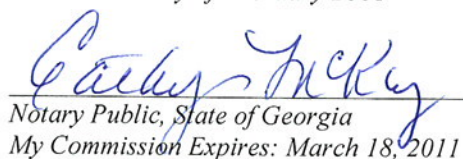 Cathy McKay
Notary Public, State of Georgia
My Commission Expires: March 18, 2011